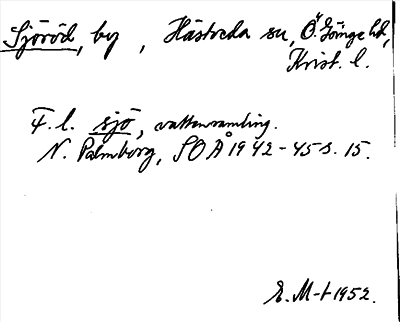 Sjöröd, by, Hästveda sn, Ö. Göinge hd,
Krist. l.
F. l. sjö, vattensamling.
N. Palmborg, SOÅ 1942-45 s. 15.
E. M-t 1952.